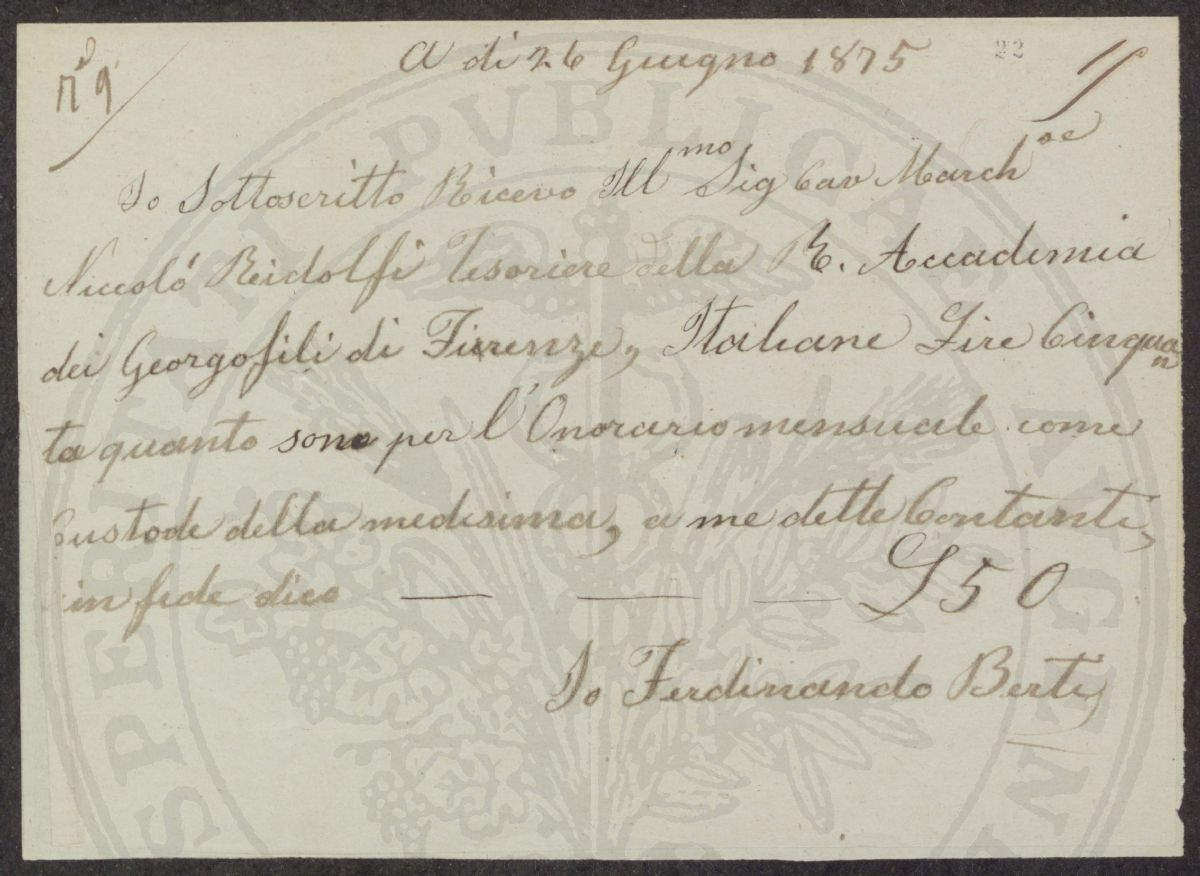 nº 9
A di 26 Giugno 1875
22
Io Sottoscritto Ricevo Ill.mo Sig Cav March
Niccoló Ridolfi Tesoriere della R. Accademia
dei Georgofili di Firenze, Italiane Lire Cinquan
ta quanto sono per l'Onorario mensuale come
Custode della medesima, a me dette Contanti,
in fede dico — — — £50
Io Ferdinando Berti
PROSPERITATI PVBLICAE AVGENDAE